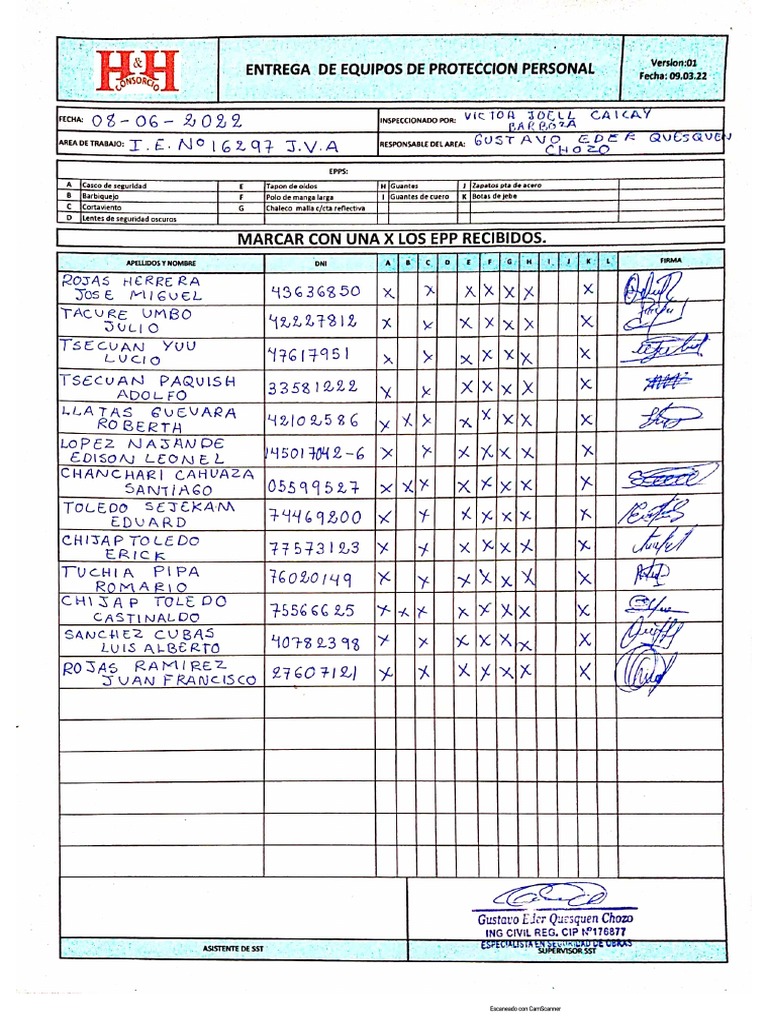 H&H
CONSORCIO
ENTREGA DE EQUIPOS DE PROTECCION PERSONAL
Version:01
Fecha: 09.03.22
FECHA: 08-06-2022
INSPECCIONADO POR: VICTOR JOELL CAICAY BARBOZA
AREA DE TRABAJO: I.E.Nº16297 J.V.A
RESPONSABLE DEL AREA: GUSTAVO EDER QUESQUEN CHOZO
EPPS:
A Casco de seguridad E Tapon de oidos H Guantes J Zapatos pta de acero
B Barbiquejo F Polo de manga larga I Guantes de cuero K Botas de jebe
C Cortaviento G Chaleco malla c/cta reflectiva
D Lentes de seguridad oscuros
MARCAR CON UNA X LOS EPP RECIBIDOS.
APELLIDOS Y NOMBRE DNI A B C D E F G H I J K L FIRMA
ROJAS HERRERA
JOSE MIGUEL 43636850 X X X X X X X
TACURE UMBO
JULIO 42227812 X X X X X X X
TSECUAN YUU
LUCIO 47617951 X X X X X X X
TSECUAN PAQUISH
ADOLFO 33581222 X X X X X X X
LLATAS GUEVARA
ROBERTH 42102586 X X X X X X X X
LOPEZ NAJANDE
EDISON LEONEL 145017042-6 X X X X X X X
CHANCHARI CAHUAZA
SANTIAGO 05599527 X X X X X X X X
TOLEDO SEJEKAM
EDUARD 74469200 X X X X X X X
CHIJAP TOLEDO
ERICK 77573123 X X X X X X X
TUCHIA PIPA
ROMARIO 76020149 X X X X X X X
CHIJAP TOLEDO
CASTINALDO 75566625 X X X X X X X X
SANCHEZ CUBAS
LUIS ALBERTO 40782398 X X X X X X X
ROJAS RAMIREZ
JUAN FRANCISCO 27607121 X X X X X X X
Gustavo Eder Quesquen Chozo
ING CIVIL REG. CIP Nº176877
ESPECIALISTA EN SEGURIDAD DE OBRAS
ASISTENTE DE SST
SUPERVISOR SST
Escaneado con CamScanner